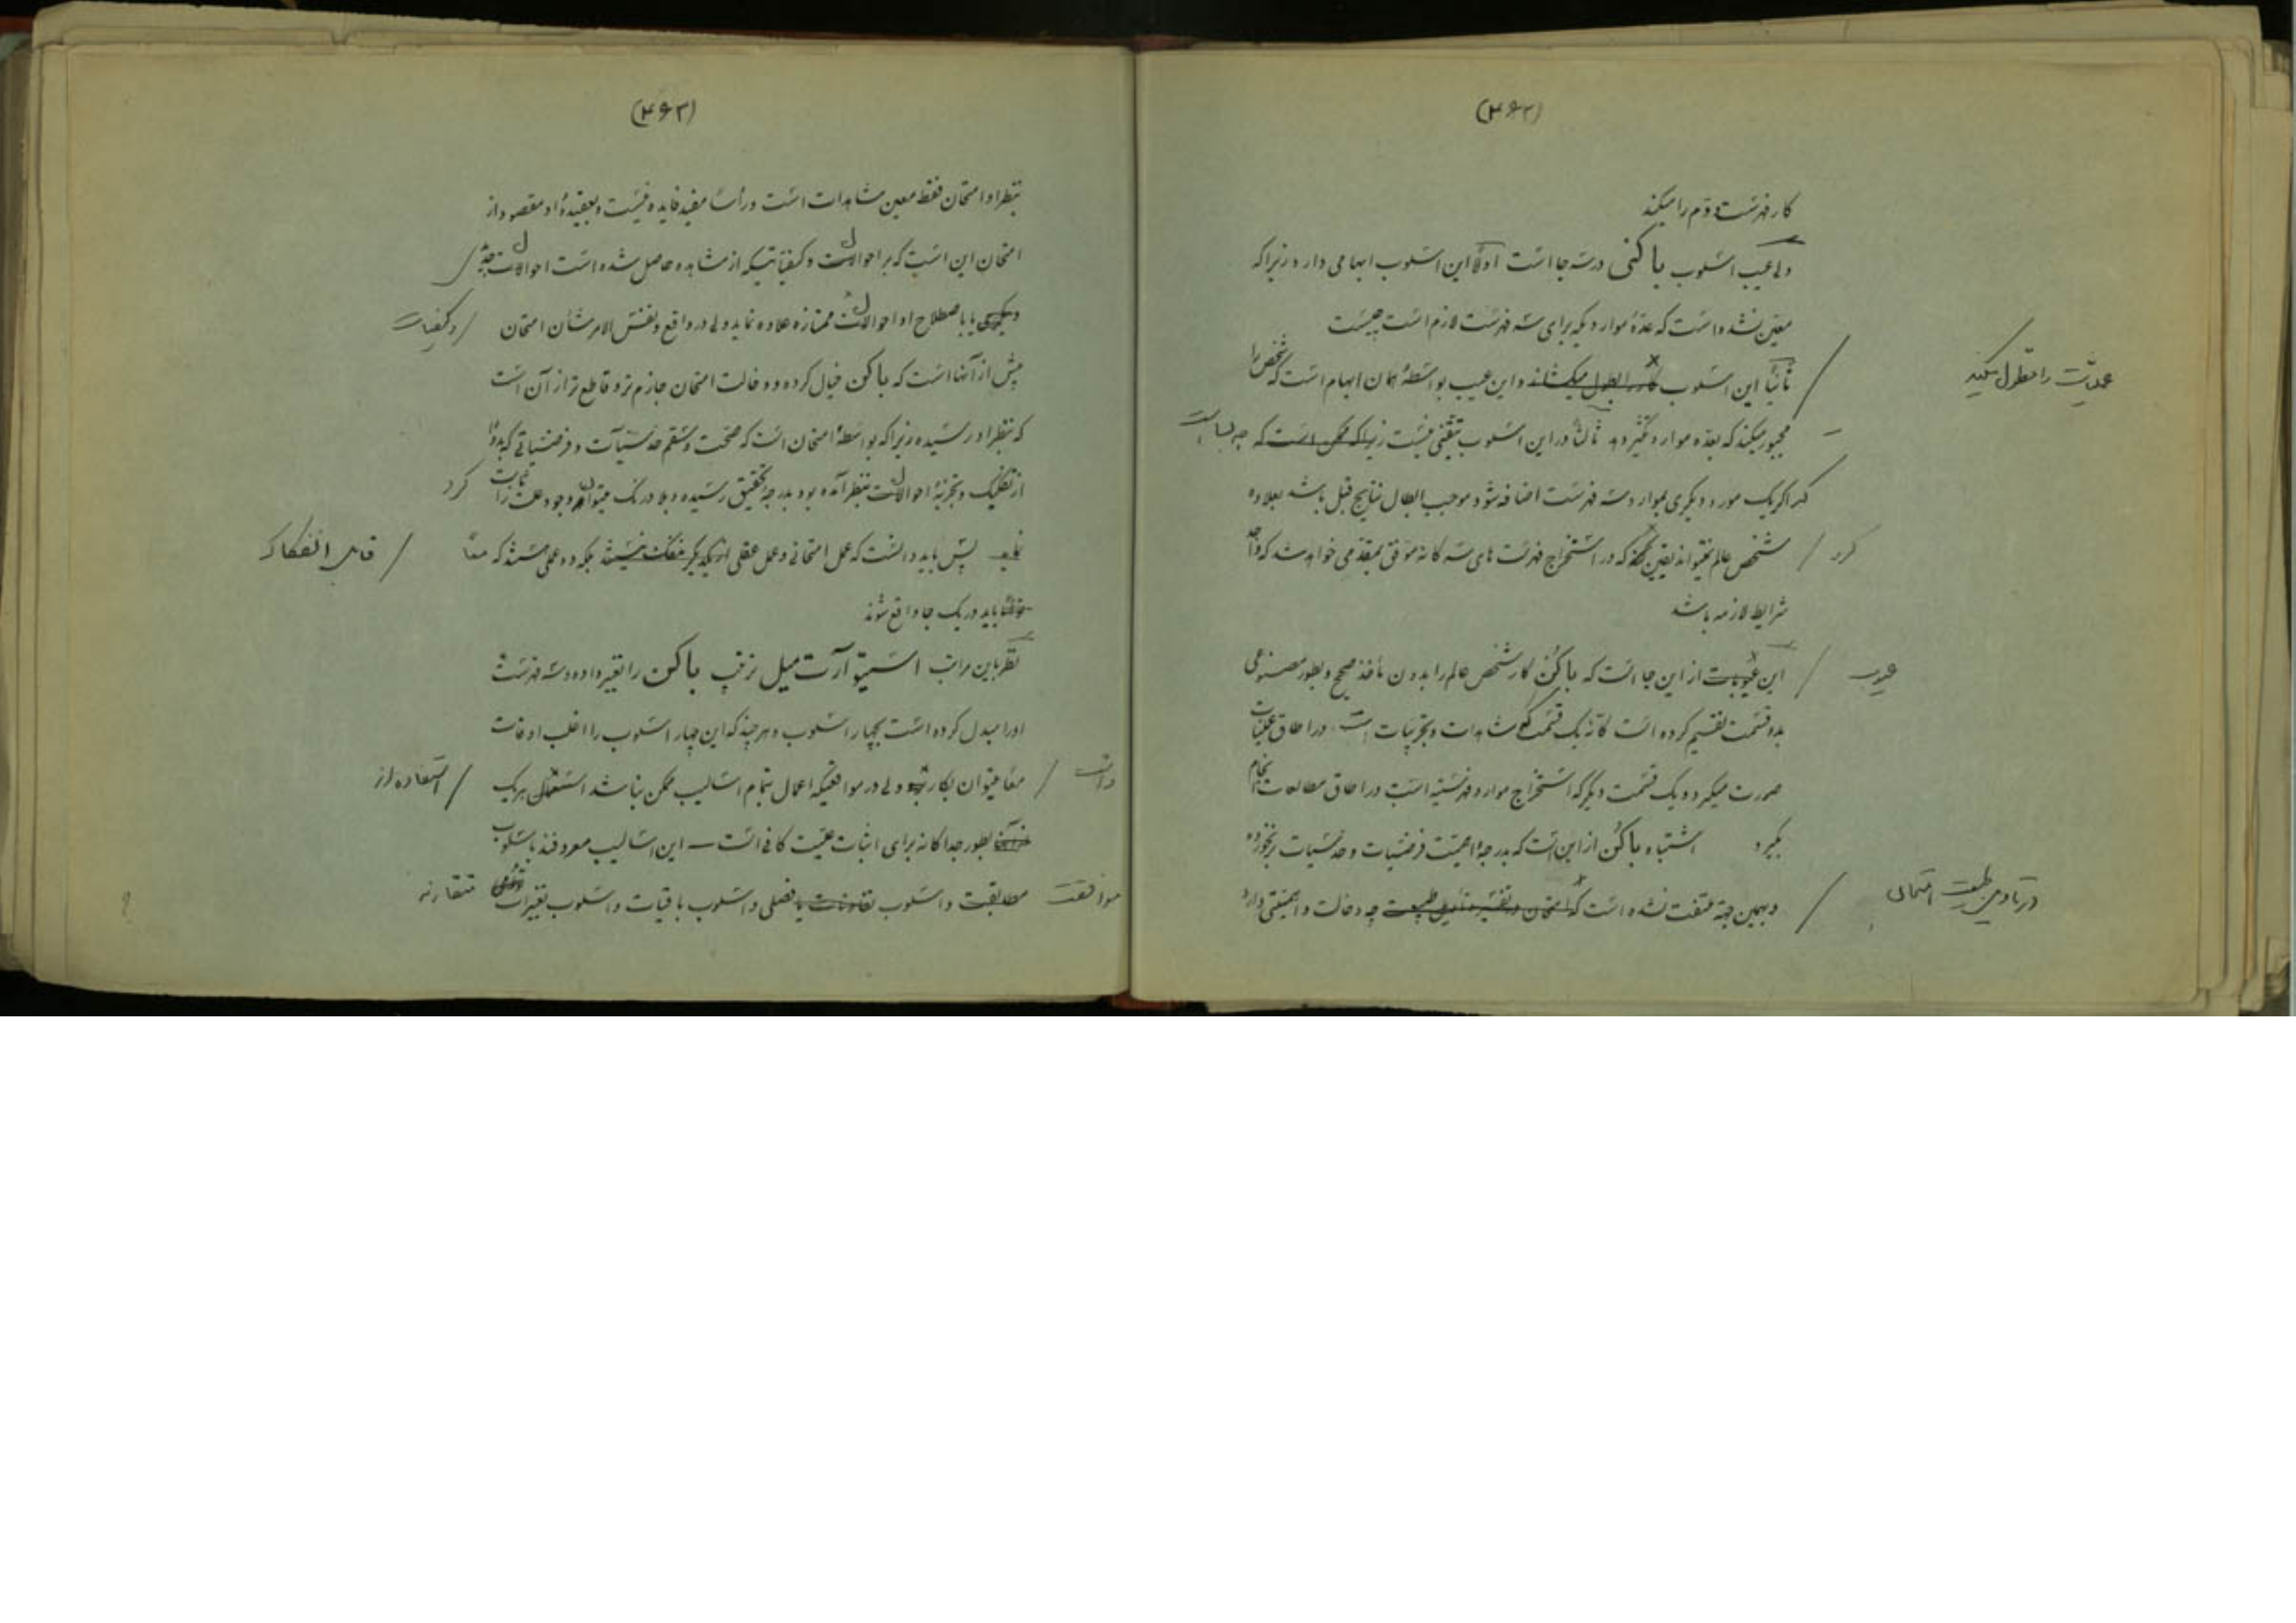 (۴۶۲)
کار فهرست دوم را میکند
ولی عیب اسلوب باکنی در سه جا است اولاً این اسلوب ابهامی دارد زیرا که
معین نشده است که عدهٔ مواردیکه برای سه فهرست لازم است چیست
ثانیاً این اسلوب کار را بطول میکشاند و این عیب بواسطهٔ همان ابهام است که شخص را
عملیات را مطول میکند
مجبور میکند که بعده موارد تکثیر دهد ثالثاً در این اسلوب یقینی نیست زیرا که ممکن است که چه بسا است
که اگر یک مورد دیگری بموارد سه فهرست اضافه شود موجب ابطال نتایج قبل باشد بعلاوه
شخص عالم نمیتواند یقین کند که در استخراج فهرست های سه گانه موفق بمقدمی خواهد شد که واجد
کرد
شرایط لازمه باشد
این عیوبات از این جا است که باکن کار شخص عالم را بدون مأخذ صحیح و بطور مصنوعی
عیوب
بدو قسمت تقسیم کرده است که یک قسمت مشاهدات و تجربیات است در اطاق عملیات
صورت میگیرد و یک قسمت دیگر که استخراج موارد فهرستیه است در اطاق مطالعات انجام
بگیرد اشتباه باکن از این است که بدرجهٔ اهمیت فرضیات و حدسیات برنخورده
و بهمین جهة ملتفت نشده است که امتحان در تفسیر و تأویل طبیعت چه دخالت و اهمیتی دارد
در تأویل طبیعت امتحان
(۴۶۳)
بنظر او امتحان فقط معین مشاهدات است و رأساً مفید فایده نیست و بعقیدهٔ او مقصود از
امتحان این است که بر احوالات و کیفیاتیکه از مشاهده حاصل شده است احوالات جدید
دیگری یا باصطلاح او احوالات ممتازه علاوه نماید ولی در واقع و نفس الامر شأن امتحان
و کیفیات
بیش از آنها است که باکن خیال کرده و دخالت امتحان جازم تر و قاطع تر از آن است
که بنظر او رسیده زیرا که بواسطهٔ امتحان است که صحت و سقم حدسیات و فرضیاتی که بدواً
از تفکیک و تجزیهٔ احوالات بنظر آمده بود بدرجهٔ تحقیق رسیده و بلا درنگ میتوان وجود علت را ثابت کرد
پس باید دانست که عمل امتحانی و عمل عقلی از یکدیگر منفک نیستند بلکه دو عملی هستند که معاً
قابل انفکاک
باید در یک جا واقع شوند
نظر باین مراتب استیوآرت میل ترتیب باکن را تغییر داده و سه فهرست
او را مبدل کرده است بچهار اسلوب و هر چند که این چهار اسلوب را اغلب اوقات
معاً میتوان بکار برد ولی در مواقعیکه اعمال تمام اسالیب ممکن نباشد استعمال هر یک
داشت
استفاده از
بطور جداگانه برای اثبات علیت کافی است – این اسالیب معروفند باسلوب
مطابقت و اسلوب تفاوت یا فصلی و اسلوب باقیات و اسلوب تغییرات متقارنه
موافقت